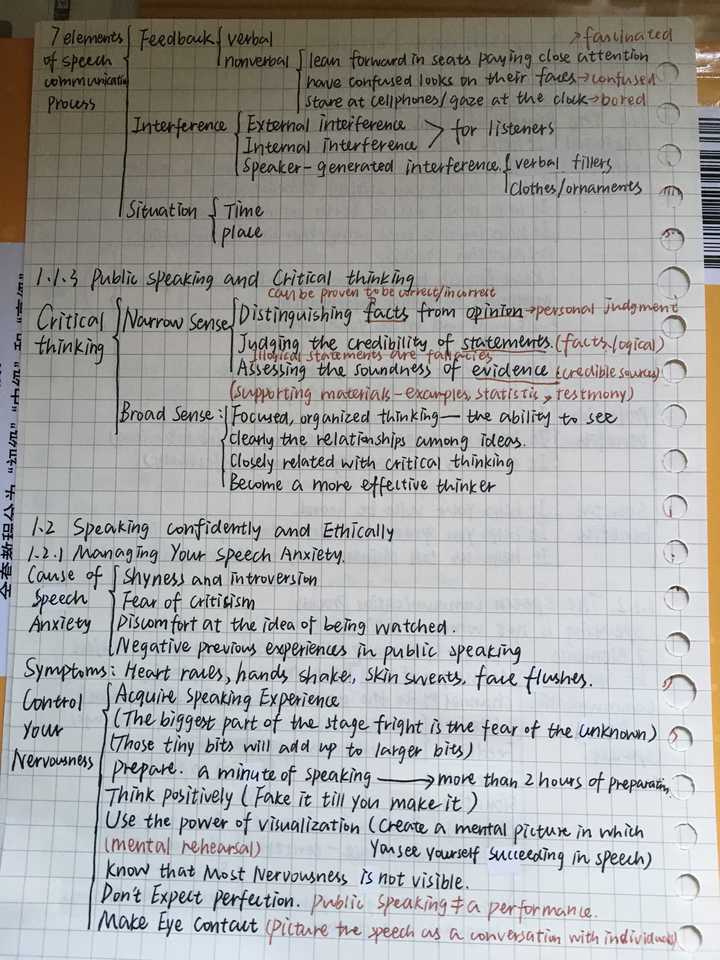 7 elements of speech communication process
Feedback { verbal
nonverbal { lean forward in seats paying close attention → fascinated
have confused looks on their faces → confused
stare at cellphones/gaze at the clock → bored
Interference { External interference
Internal interference > for listeners
Speaker-generated interference. { verbal fillers
clothes/ornaments
Situation { Time
place
1.1.3 Public speaking and Critical thinking
can be proven to be correct/incorrect
Critical thinking { Narrow Sense { Distinguishing facts from opinion → personal judgment
Judging the credibility of statements. (facts. logical)
illogical statements are fallacies
Assessing the soundness of evidence (credible sources)
(supporting materials - examples, statistics, testmony)
Broad Sense: { Focused, organized thinking — the ability to see
clearly the relationships among ideas.
Closely related with critical thinking
Become a more effective thinker
1.2 Speaking confidently and Ethically
1.2.1 Managing Your speech Anxiety.
Cause of Speech Anxiety { Shyness and introversion
Fear of critisism
Discomfort at the idea of being watched.
Negative previous experiences in public speaking
Symptoms: Heart races, hands shake, skin sweats, face flushes.
Control Your Nervousness { Acquire Speaking Experience
(The biggest part of the stage fright is the fear of the unknown)
(Those tiny bits will add up to larger bits)
Prepare. a minute of speaking → more than 2 hours of preparation
Think positively (Fake it till you make it)
Use the power of visualization (Create a mental picture in which
(mental rehearsal) You see yourself succeeding in speech)
Know that Most Nervousness is not visible.
Don't Expect perfection. public speaking ≠ a performance.
Make Eye Contact (picture the speech as a conversation with individuals)